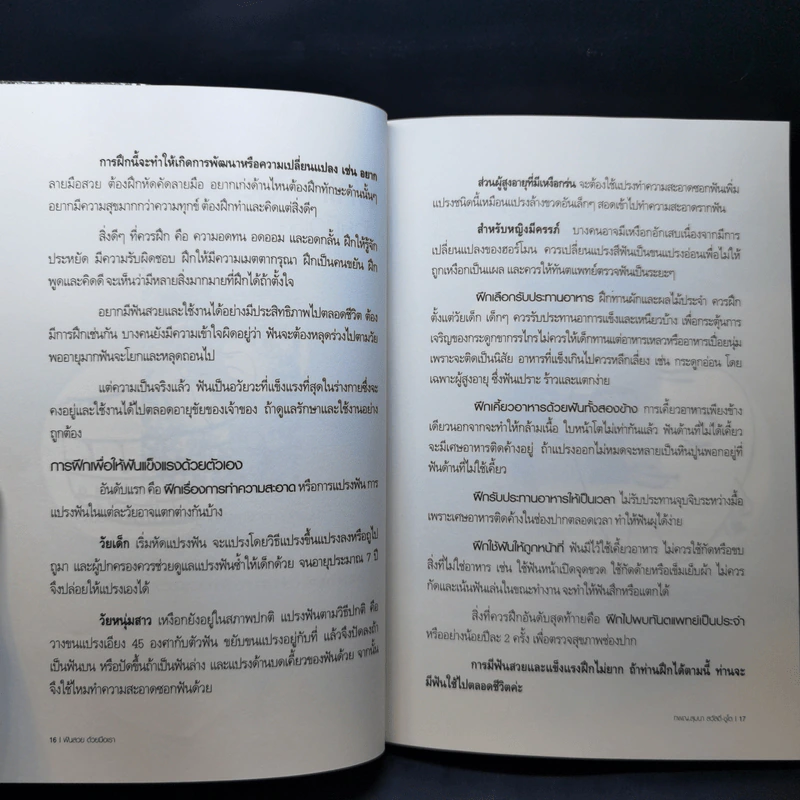 การฝึกนี้จะทำให้เกิดการพัฒนาหรือความเปลี่ยนแปลง เช่น อยาก
ลายมือสวย ต้องฝึกหัดคัดลายมือ อยากเก่งด้านไหนต้องฝึกทักษะด้านนั้นๆ
อยากมีความสุขมากกว่าความทุกข์ ต้องฝึกทำและคิดแต่สิ่งดีๆ
สิ่งดีๆ ที่ควรฝึก คือ ความอดทน อดออม และอดกลั้น ฝึกให้รู้จัก
ประหยัด มีความรับผิดชอบ ฝึกให้มีความเมตตากรุณา ฝึกเป็นคนขยัน ฝึก
พูดและคิดดี จะเห็นว่ามีหลายสิ่งมากมายที่ฝึกได้ถ้าตั้งใจ
อยากมีฟันสวยและใช้งานได้อย่างมีประสิทธิภาพไปตลอดชีวิต ต้อง
มีการฝึกเช่นกัน บางคนยังมีความเข้าใจผิดอยู่ว่า ฟันจะต้องหลุดร่วงไปตามวัย
พออายุมากฟันจะโยกและหลุดถอนไป
แต่ความเป็นจริงแล้ว ฟันเป็นอวัยวะที่แข็งแรงที่สุดในร่างกายซึ่งจะ
คงอยู่และใช้งานได้ไปตลอดอายุขัยของเจ้าของ ถ้าดูแลรักษาและใช้งานอย่าง
ถูกต้อง
การฝึกเพื่อให้ฟันแข็งแรงด้วยตัวเอง
อันดับแรก คือ ฝึกเรื่องการทำความสะอาด หรือการแปรงฟัน การ
แปรงฟันในแต่ละวัยอาจแตกต่างกันบ้าง
วัยเด็ก เริ่มหัดแปรงฟัน จะแปรงโดยวิธีแปรงขึ้นแปรงลงหรือถูไป
ถูมา และผู้ปกครองควรช่วยดูแลแปรงฟันซ้ำให้เด็กด้วย จนอายุประมาณ 7 ปี
จึงปล่อยให้แปรงเองได้
วัยหนุ่มสาว เหงือกยังอยู่ในสภาพปกติ แปรงฟันตามวิธีปกติ คือ
วางขนแปรงเอียง 45 องศากับตัวฟัน ขยับขนแปรงอยู่กับที่ แล้วจึงปัดลงถ้า
เป็นฟันบน หรือปัดขึ้นถ้าเป็นฟันล่าง และแปรงด้านบดเคี้ยวของฟันด้วย จากนั้น
จึงใช้ไหมทำความสะอาดซอกฟันด้วย
16 | ฟันสวย ด้วยมือเรา
ส่วนผู้สูงอายุที่มีเหงือกร่น จะต้องใช้แปรงทำความสะอาดซอกฟันเพิ่ม
แปรงชนิดนี้เหมือนแปรงล้างขวดอันเล็กๆ สอดเข้าไปทำความสะอาดรากฟัน
สำหรับหญิงมีครรภ์ บางคนอาจมีเหงือกอักเสบเนื่องจากมีการ
เปลี่ยนแปลงของฮอร์โมน ควรเปลี่ยนแปรงสีฟันเป็นขนแปรงอ่อนเพื่อไม่ให้
ถูกเหงือกเป็นแผล และควรให้ทันตแพทย์ตรวจฟันเป็นระยะๆ
ฝึกเลือกรับประทานอาหาร ฝึกทานผักและผลไม้ประจำ ควรฝึก
ตั้งแต่วัยเด็ก เด็กๆ ควรรับประทานอาหารแข็งและเหนียวบ้าง เพื่อกระตุ้นการ
เจริญของกระดูกขากรรไกรไม่ควรให้เด็กทานแต่อาหารเหลวหรืออาหารเปื่อยนุ่ม
เพราะจะติดเป็นนิสัย อาหารที่แข็งเกินไปควรหลีกเลี่ยง เช่น กระดูกอ่อน โดย
เฉพาะผู้สูงอายุ ซึ่งฟันเปราะ ร้าวและแตกง่าย
ฝึกเคี้ยวอาหารด้วยฟันทั้งสองข้าง การเคี้ยวอาหารเพียงข้าง
เดียวนอกจากจะทำให้กล้ามเนื้อ ใบหน้าโตไม่เท่ากันแล้ว ฟันด้านที่ไม่ได้เคี้ยว
จะมีเศษอาหารติดค้างอยู่ ถ้าแปรงออกไม่หมดจะกลายเป็นหินปูนพอกอยู่ที่
ฟันด้านที่ไม่ใช้เคี้ยว
ฝึกรับประทานอาหารให้เป็นเวลา ไม่รับประทานจุบจิบระหว่างมื้อ
เพราะเศษอาหารติดค้างในช่องปากตลอดเวลา ทำให้ฟันผุได้ง่าย
ฝึกใช้ฟันให้ถูกหน้าที่ ฟันมีไว้ใช้เคี้ยวอาหาร ไม่ควรใช้กัดหรือขบ
สิ่งที่ไม่ใช่อาหาร เช่น ใช้ฟันหน้าเปิดจุกขวด ใช้กัดด้ายหรือเข็มเย็บผ้า ไม่ควร
กัดและเน้นฟันเล่นในขณะทำงาน จะทำให้ฟันสึกหรือแตกได้
สิ่งที่ควรฝึกอันดับสุดท้ายคือ ฝึกไปพบทันตแพทย์เป็นประจำ
หรืออย่างน้อยปีละ 2 ครั้ง เพื่อตรวจสุขภาพช่องปาก
การมีฟันสวยและแข็งแรงฝึกไม่ยาก ถ้าท่านฝึกได้ตามนี้ ท่านจะ
มีฟันใช้ไปตลอดชีวิตค่ะ
ทพญ.สุมนา สวัสดิ์-ชูโต | 17